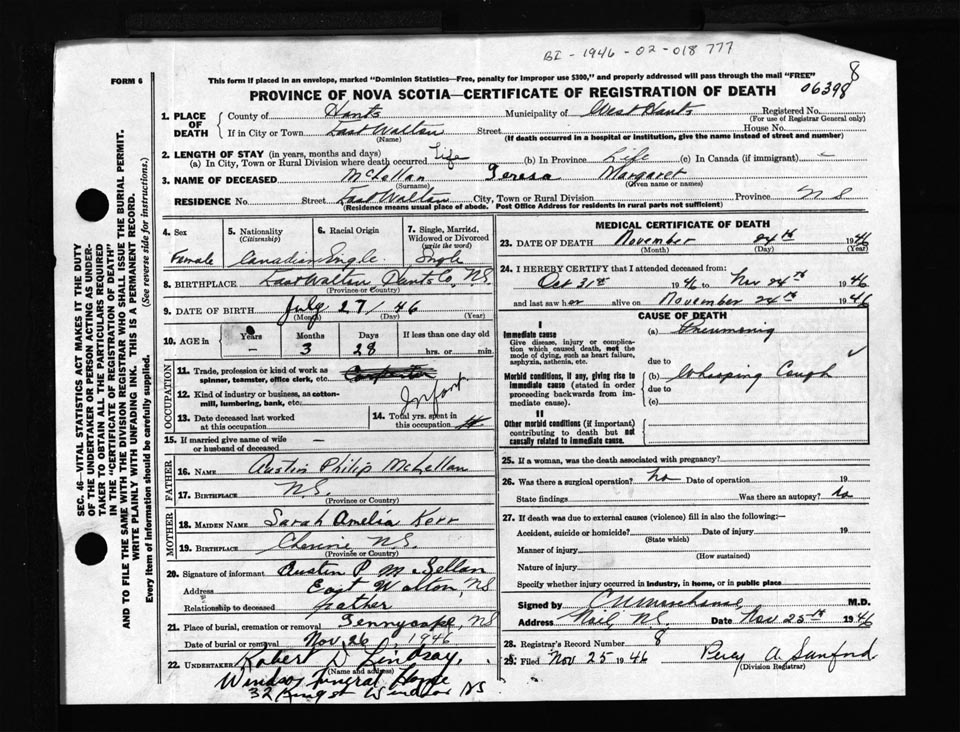 BI - 1946 - 02 - 018 777
8
FORM 6
This form if placed in an envelope, marked "Dominion Statistics—Free, penalty for improper use $300," and properly addressed will pass through the mail "FREE"
06398
PROVINCE OF NOVA SCOTIA—CERTIFICATE OF REGISTRATION OF DEATH
SEC. 46—VITAL STATISTICS ACT MAKES IT THE DUTY
OF THE UNDERTAKER OR PERSON ACTING AS UNDER-
TAKER TO OBTAIN ALL THE PARTICULARS REQUIRED
IN THE "CERTIFICATE OF REGISTRATION OF DEATH"
AND TO FILE THE SAME WITH THE DIVISION REGISTRAR WHO SHALL ISSUE THE BURIAL PERMIT.
WRITE PLAINLY WITH UNFADING INK. THIS IS A PERMANENT RECORD.
Every item of information should be carefully supplied. (See reverse side for instructions.)
1. PLACE OF DEATH
County of Hants Municipality of West Hants Registered No.
(For use of Registrar General only)
If in City or Town East Walton Street House No.
(Name) (If death occurred in a hospital or institution, give the name instead of street and number)
2. LENGTH OF STAY (in years, months and days)
(a) In City, Town or Rural Division where death occurred Life (b) In Province Life (c) In Canada (if immigrant) —
3. NAME OF DECEASED McLellan Teresa Margaret
(Surname) (Given name or names)
RESIDENCE No. Street East Walton City, Town or Rural Division Province N S
(Residence means usual place of abode. Post Office Address for residents in rural parts not sufficient)
4. Sex
Female
5. Nationality
(Citizenship)
Canadian
6. Racial Origin
7. Single, Married, Widowed or Divorced
(write the word)
Single
8. BIRTHPLACE East Walton Hants Co, N.S.
(Province or Country)
9. DATE OF BIRTH July 27 / 46
(Month) (Day) (Year)
10. AGE in Years Months Days If less than one day old
— 3 28 hrs. or min.
OCCUPATION
11. Trade, profession or kind of work as spinner, teamster, office clerk, etc.
12. Kind of industry or business, as cotton-mill, lumbering, bank, etc.
13. Date deceased last worked at this occupation
14. Total yrs. spent in this occupation
15. If married give name of wife or husband of deceased —
FATHER
16. NAME Austin Philip McLellan
17. BIRTHPLACE N.S.
(Province or Country)
MOTHER
18. MAIDEN NAME Sarah Amelia Kerr
19. BIRTHPLACE N.S.
(Province or Country)
20. Signature of informant Austin P McLellan
Address East Walton, NS
Relationship to deceased father
21. Place of burial, cremation or removal NS
Date of burial or removal Nov 26, 1946
22. UNDERTAKER Robert D Lindsay,
(Name and address)
Windsor Funeral Home
32 King St Windsor NS
MEDICAL CERTIFICATE OF DEATH
23. DATE OF DEATH November 24th 1946
(Month) (Day) (Year)
24. I HEREBY CERTIFY that I attended deceased from:
Oct 31st 1946 to Nov 24th 1946
and last saw her alive on November 24th 1946
CAUSE OF DEATH
I
Immediate cause
Give disease, injury or complication which caused death, not the mode of dying, such as heart failure, asphyxia, asthenia, etc.
(a) Pneumonia
due to
Morbid conditions, if any, giving rise to immediate cause (stated in order proceeding backwards from immediate cause).
(b) Whooping Cough
due to
(c)
II
Other morbid conditions (if important) contributing to death but not causally related to immediate cause.
25. If a woman, was the death associated with pregnancy?
26. Was there a surgical operation? no Date of operation 19
State findings Was there an autopsy? no
27. If death was due to external causes (violence) fill in also the following:—
Accident, suicide or homicide? Date of injury 19
(State which)
Manner of injury
(How sustained)
Nature of injury
Specify whether injury occurred in industry, in home, or in public place
Signed by M.D.
Address Noel N.S. Date Nov 25th 1946
28. Registrar's Record Number 8
29. Filed Nov 25 1946 Percy A. Sanford
(Division Registrar)